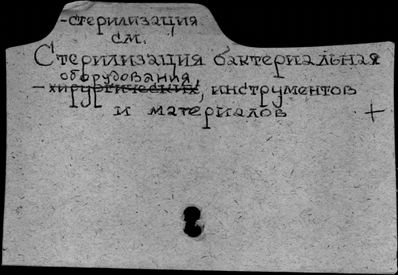 -стерилизация
см.
Стерилизация бактериальная
оборудования,
- хирургических, инструментов
и материалов +